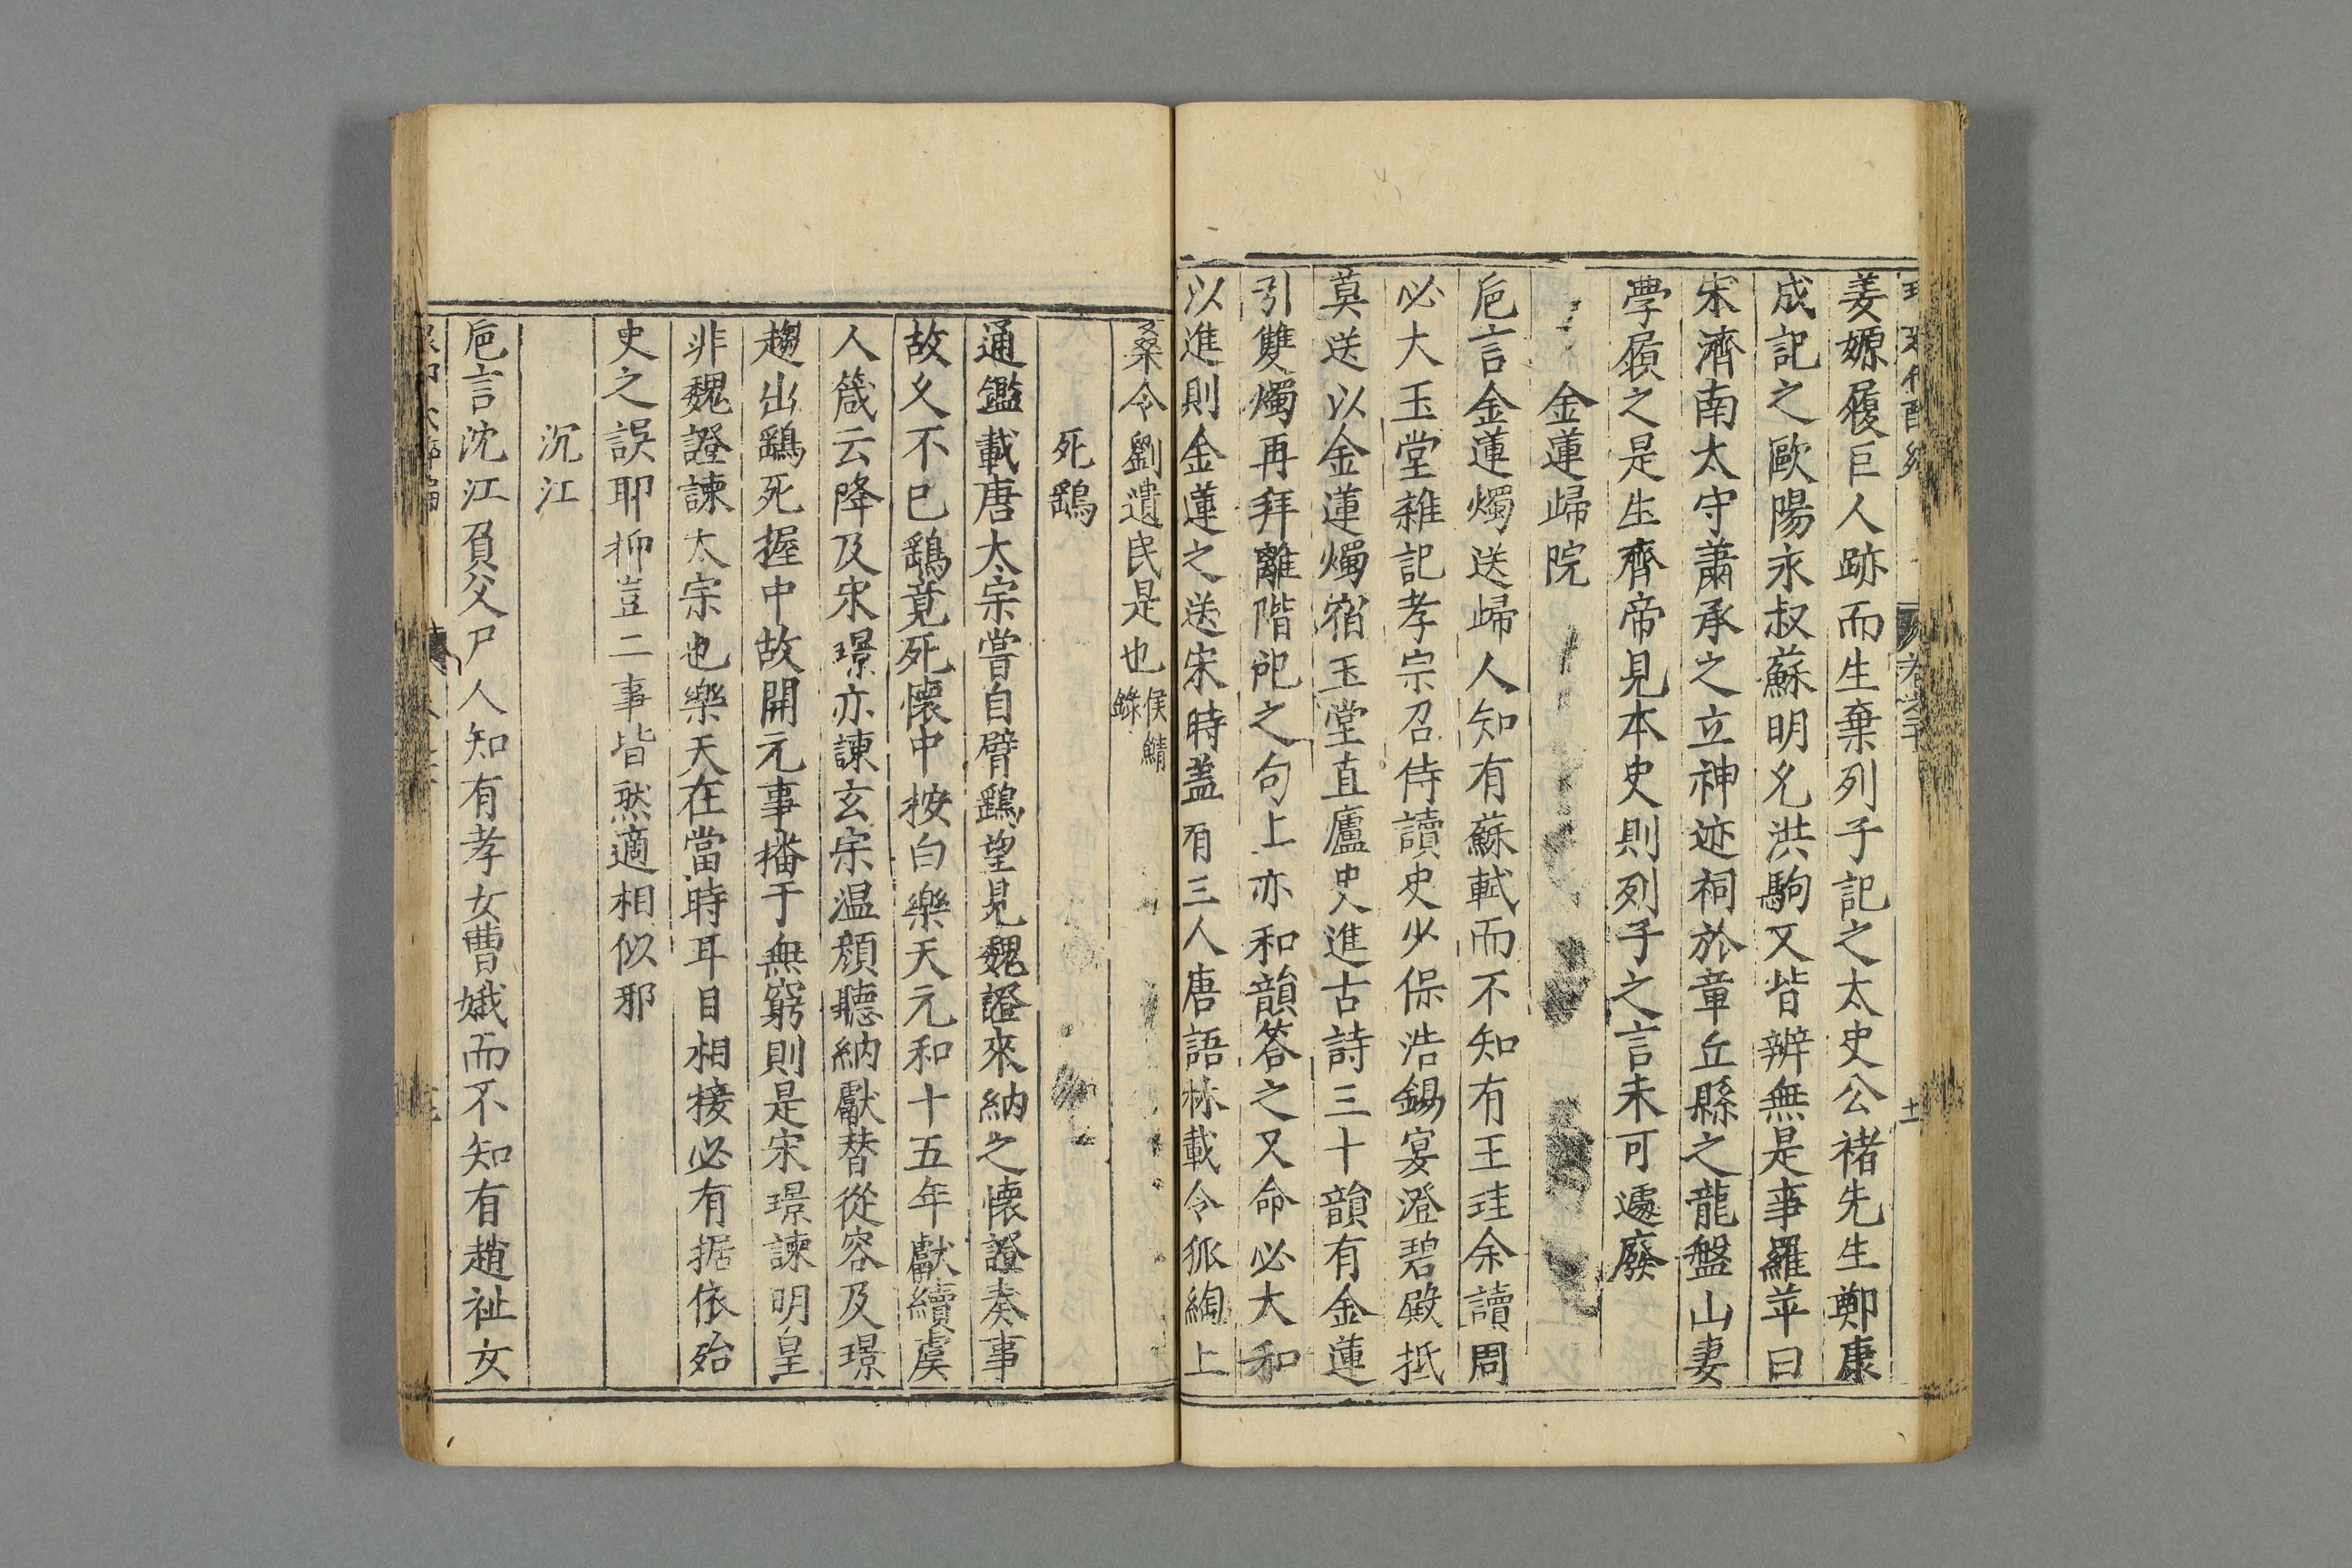 姜嫄履巨人跡而生棄列子記之太史公褚先生鄭康
成記之歐陽永叔蘇明允洪駒又皆辨無是事羅苹曰
宋濟南太守蕭承之立神迹祠於章丘縣之龍盤山妻
學屐之是生齊帝見本史則列子之言未可遽廢
金蓮歸院
巵言金蓮燭送歸人知有蘇軾而不知有王珪余讀周
必大玉堂雜記孝宗召侍讀史少保浩錫宴澄碧殿抵
莫送以金蓮燭宿玉堂直廬史進古詩三十韻有金蓮
引雙燭再拜離階戺之句上亦和韻答之又命必大和
以進則金蓮之送宋時盖有三人唐語林載令狐綯上
桑令劉遺民是也侯鯖錄
死鷂
通鑑載唐太宗嘗自臂鷂望見魏證來納之懷證奏事
故久不已鷂竟死懷中按白樂天元和十五年獻續虞
人箴云降及宋璟亦諫玄宗温顔聽納獻替從容及璟
趨出鷂死握中故開元事播于無窮則是宋璟諫明皇
非魏證諫太宗也樂天在當時耳目相接必有据依殆
史之誤耶抑豈二事皆然適相似邪
沉江
巵言沈江負父尸人知有孝女曹娥而不知有趙祉女